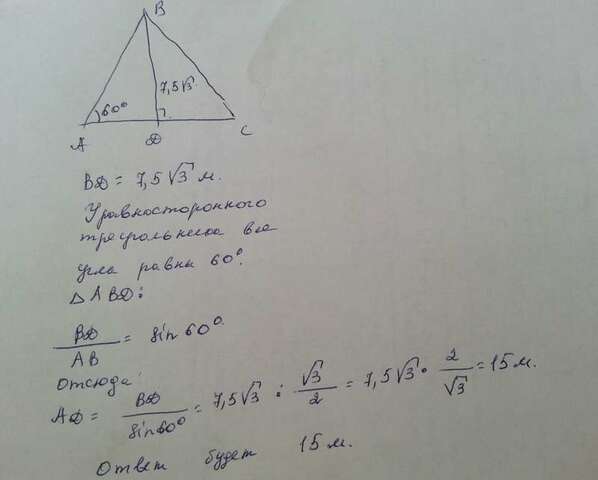 B
60°
7,5√3
A
D
C
BD = 7,5√3 м.
Уравностороннего
треугольника все
угла равны 60°.
△ABD:
BD/AB = sin 60°
отсюда:
AD = BD/sin60° = 7,5√3 : √3/2 = 7,5√3 · 2/√3 = 15 м.
Ответ будет 15 м.